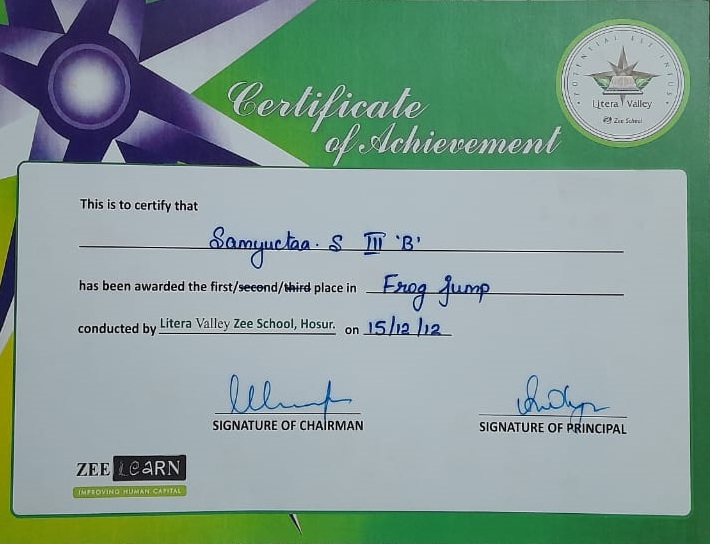 Certificate
of Achievement
POTENTIAL
Litera Valley
Zee School
This is to certify that
Samyuctaa. S III 'B'
has been awarded the first/second/third place in Frog Jump
conducted by Litera Valley Zee School, Hosur. on 15/12/12
SIGNATURE OF CHAIRMAN
SIGNATURE OF PRINCIPAL
ZEE LeARN
IMPROVING HUMAN CAPITAL